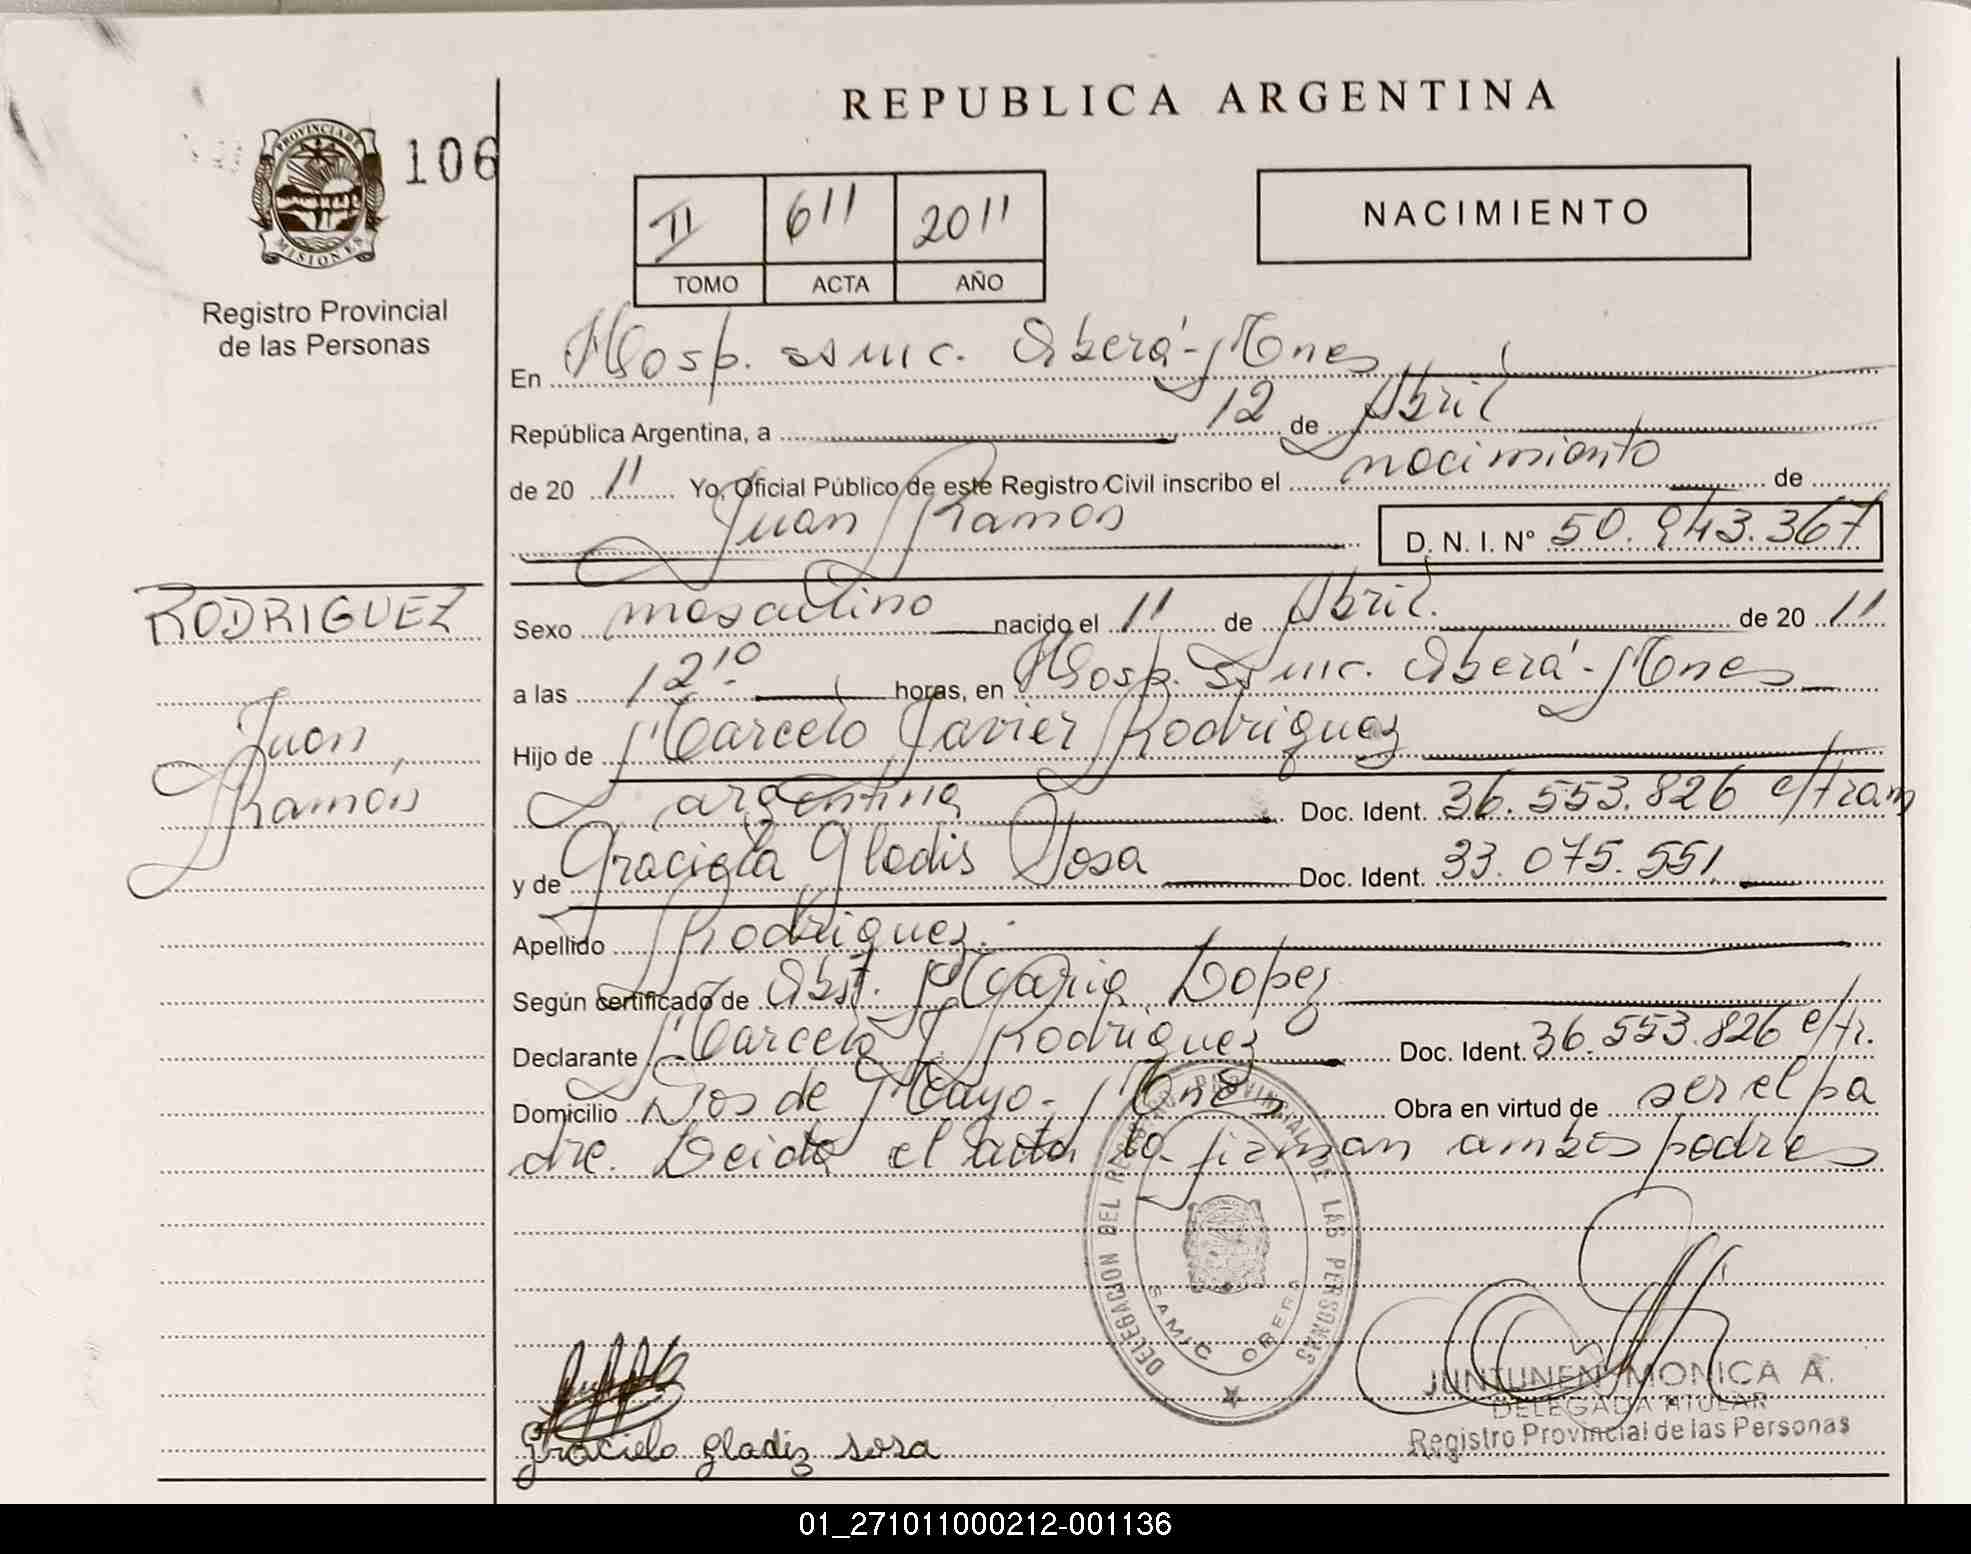 REPUBLICA ARGENTINA
PROVINCIA DE
MISIONES
106
Registro Provincial
de las Personas
II 611 2011
TOMO ACTA AÑO
NACIMIENTO
En Hosp. SAMIC. Oberá-Mnes
República Argentina, a 12 de Abril
de 20 11 Yo, Oficial Público de este Registro Civil inscribo el nacimiento de
Juan Ramon D. N. I. N° 50.943.367
RODRIGUEZ
Juan
Ramón
Sexo masculino nacido el 11 de Abril. de 20 11
a las 12.10 horas, en Hosp. SAMIC. Oberá-Mnes
Hijo de Marcelo Javier Rodriguez
argentina Doc. Ident. 36.553.826 e/tram
y de Graciela Gladis Sosa Doc. Ident. 33.075.551
Apellido Rodriguez.
Según certificado de Obst. Maria Lopez
Declarante Marcelo J Rodriguez Doc. Ident. 36.553.826 e/tr.
Domicilio Dos de Mayo-Mnes Obra en virtud de ser el pa
dre. Leida el acta la firman ambos padres
DELEGACION DEL REGISTRO PROVINCIAL DE LAS PERSONAS
SAMIC OBERA
graciela gladiz sosa
JUNTUNEN MONICA A.
DELEGADA TITULAR
Registro Provincial de las Personas
01_271011000212-001136